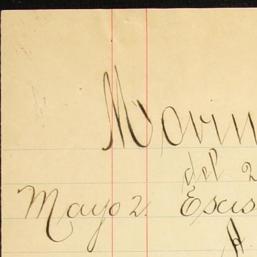 Movim
del 2
Mayo 2. Exis
H